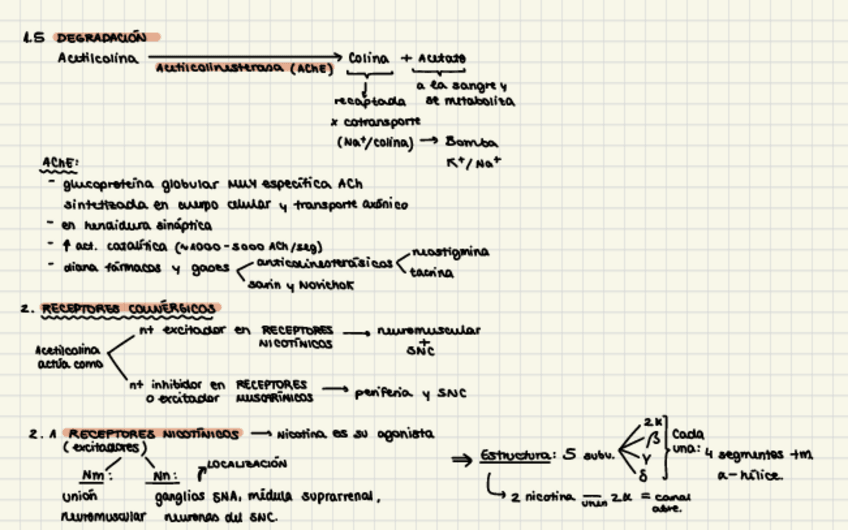 1.5 DEGRADACIÓN
Acetilcolina → Colina + Acetato
Acetilcolinesterasa (AChE)
a la sangre y
recaptada se metaboliza
x cotransporte
(Na⁺/colina) → Bomba
K⁺/Na⁺
AChE:
- glucoproteína globular MUY específica ACh
sintetizada en cuerpo celular y transporte axónico
- en hendidura sináptica
- ↑ act. catalítica (≈4000-5000 ACh/seg)
- diana fármacos y gases
anticolinesterásicos
neostigmina
tacrina
sarín y Novichok
2. RECEPTORES COLINÉRGICOS
Acetilcolina
actúa como
nt excitador en RECEPTORES → neuromuscular
NICOTÍNICOS
+
SNC
nt inhibidor en RECEPTORES → periferia y SNC
o excitador MUSCARÍNICOS
2.1 RECEPTORES NICOTÍNICOS → Nicotina es su agonista
(excitadores)
LOCALIZACIÓN
Nm: Nn:
unión ganglios SNA, médula suprarrenal,
neuromuscular neuronas del SNC.
⇒ Estructura: 5 subu.
2α
β
γ
δ
Cada
una: 4 segmentos tm
α-hélice.
2 nicotina unen 2α = canal
abre.